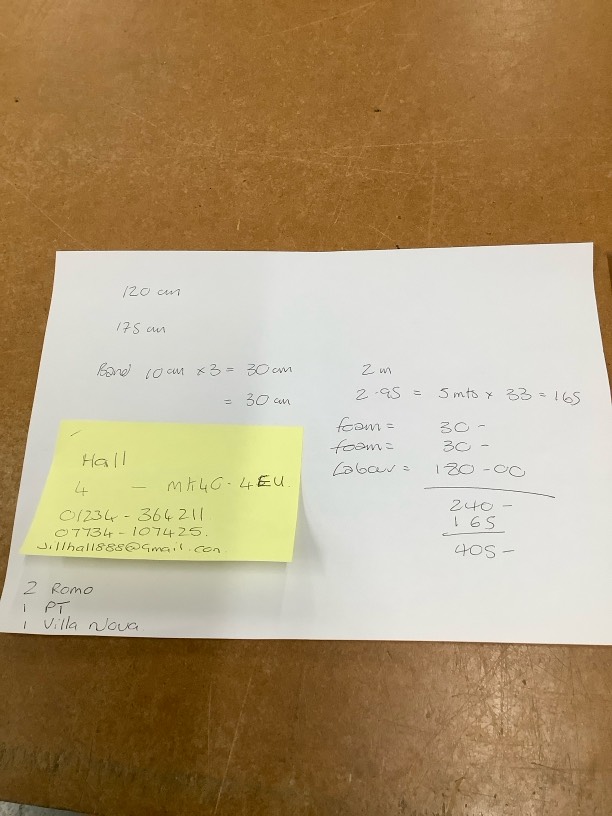 120 cm
175 cm
Band 10 cm x 3 = 30 cm
= 30 cm
2 m
2.95 = 5 mts x 33 = 165
foam = 30 -
foam = 30 -
Labour = 180-00
240 -
165
405 -
Hall
4 - MK40-4EU.
01234-364211
07734-107425.
Jillhall888@gmail.com.
2 Romo
1 PT
1 Villa Nova